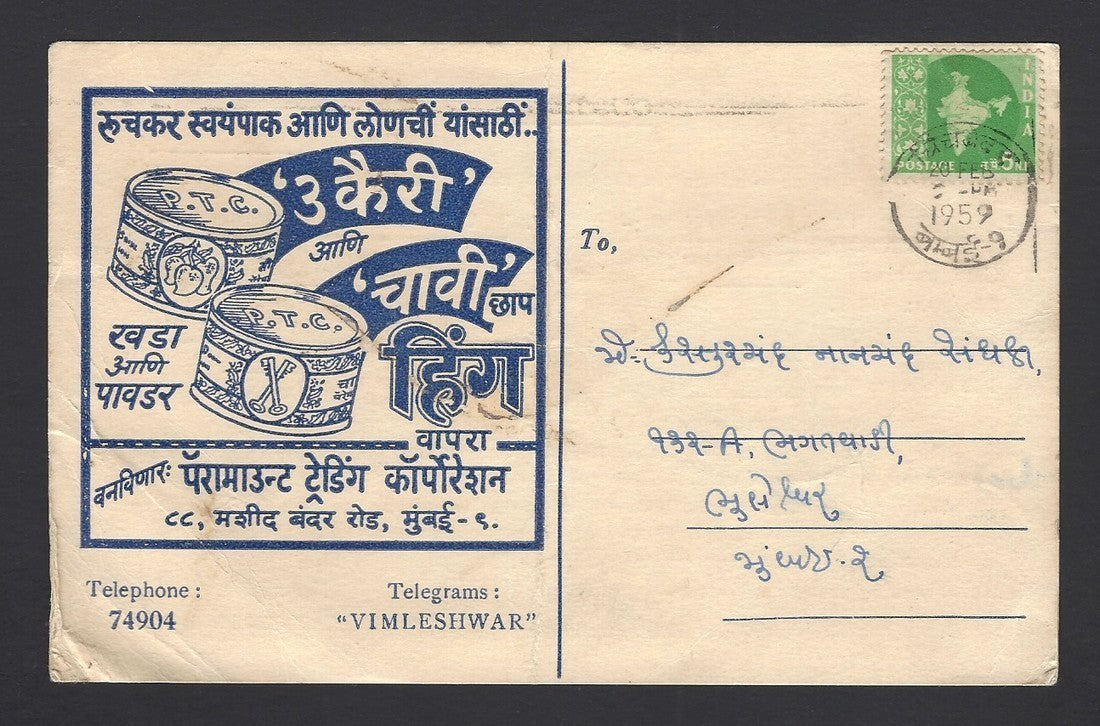 रुचकर स्वयंपाक आणि लोणचीं यांसाठीं..
'3 कैरी'
आणि
'चावी' छाप
P.T.C.
P.T.C.
खडा
आणि
पावडर
हिंग
वापरा
बनविणारः पॅरामाउन्ट ट्रेडिंग कॉर्पोरेशन
८८, मशीद बंदर रोड, मुंबई - ९.
Telephone :
74904
Telegrams :
"VIMLESHWAR"
INDIA
POSTAGE
20 FEB
1959
To,
નાનચંદ
૧૩૧-A,
મુંબઈ-૨